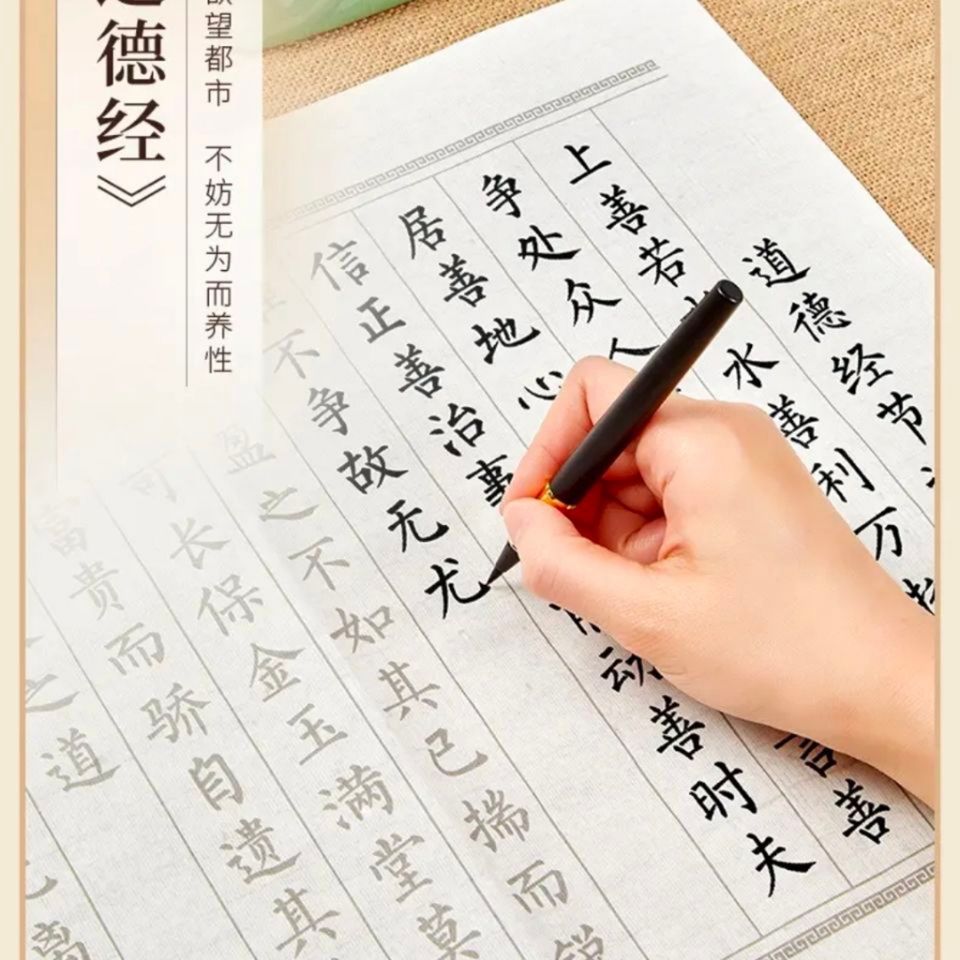 德经》
望都市 不妨无为而养性
道德经节
上善若水善利万
争处众人
居善地心善
信正善治事动善时夫
不争故无尤
盈之不如其已揣而
可长保金玉满堂莫
富贵而骄自遗其
之道
离